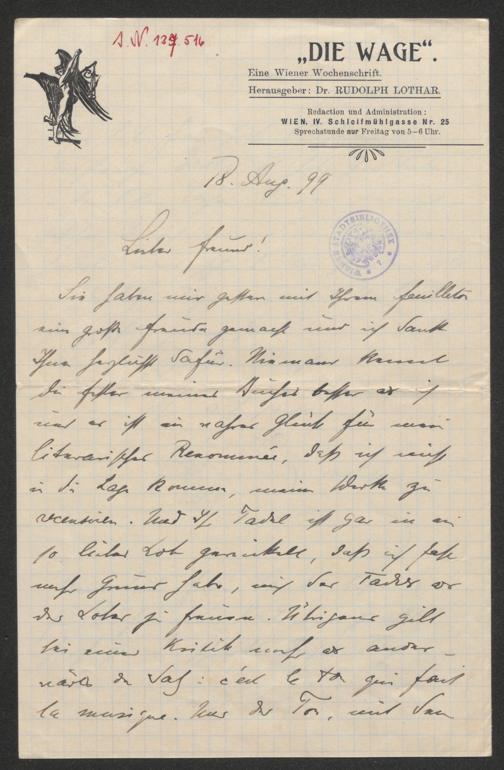 I. N. 137.516
„DIE WAGE“.
Eine Wiener Wochenschrift.
Herausgeber: Dr. RUDOLPH LOTHAR.
Redaction und Administration:
WIEN, IV. Schleifmühlgasse Nr. 25
Sprechstunde nur Freitag von 5–6 Uhr.
18. Aug. 99
WIENER STADTBIBLIOTHEK
Lieber Freund!
Sie haben mir gestern mit Ihrem Feuilleton
eine große Freude gemacht und ich danke
Ihnen herzlichst dafür. Niemand kennt
die Fehler meines Buches besser als ich
und es ist ein wahres Glück für mein
literarisches Renommée, daß ich nicht
in die Lage komme, meine Werke zu
recensiren. Und Ihr Tadel ist gar in ein
so liebes Lob gewickelt, daß ich fast
mehr Grund habe, mich des Tadels als
des Lobes zu freuen. Übrigens gilt
bei einer Kritik mehr als ander-
wärts der Satz: c'est le ton qui fait
la musique. Und der Ton, mit dem